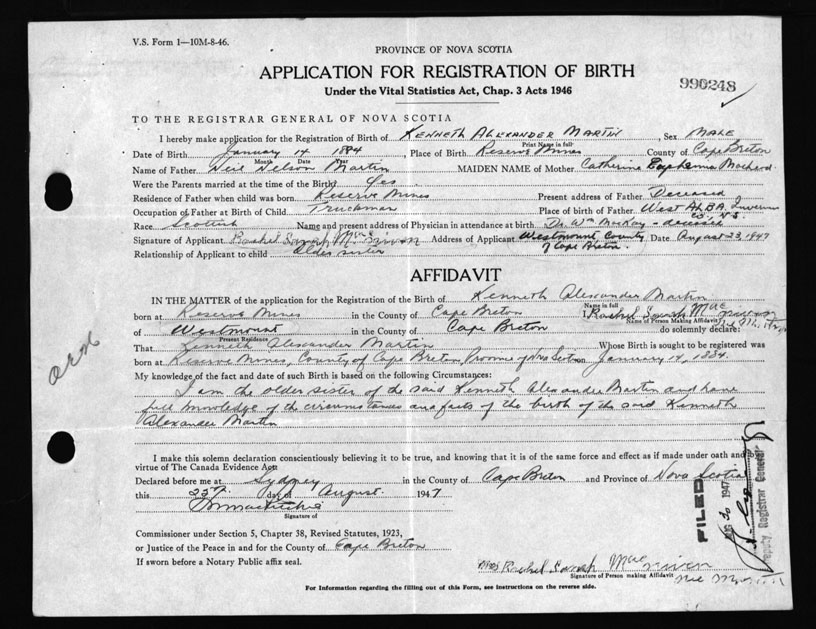 V.S. Form 1—10M-8-46.
PROVINCE OF NOVA SCOTIA
APPLICATION FOR REGISTRATION OF BIRTH
Under the Vital Statistics Act, Chap. 3 Acts 1946
990248
TO THE REGISTRAR GENERAL OF NOVA SCOTIA
I hereby make application for the Registration of Birth of Kenneth Alexander Martin, Sex Male
Print Name in full
Date of Birth January 14 1884, Place of Birth Reserve Mines County of Cape Breton
Month Date Year
Name of Father Neil Nelson Martin MAIDEN NAME of Mother Catherine Euphemia MacLeod
Were the Parents married at the time of the Birth? Yes
Residence of Father when child was born Reserve Mines Present address of Father Deceased
Occupation of Father at Birth of Child Truckman Place of birth of Father West Alba, Inverness
Co, N.S.
Race Scottish Name and present address of Physician in attendance at birth Dr. Wm MacKay - deceased
Signature of Applicant Rachel Sarah MacNiven Address of Applicant Westmount County Date August 23, 1947
of Cape Breton.
Relationship of Applicant to child older sister
AFFIDAVIT
IN THE MATTER of the application for the Registration of the Birth of Kenneth Alexander Martin
born at Reserve Mines in the County of Cape Breton I, Rachel Sarah MacNiven
Name in full
Name of Person Making Affidavit
née Martin
of Westmount in the County of Cape Breton do solemnly declare:
Present Residence
That Kenneth Alexander Martin Whose Birth is sought to be registered was
born at Reserve Mines, County of Cape Breton, Province of Nova Scotia on January 14, 1884.
My knowledge of the fact and date of such Birth is based on the following Circumstances:
I am the older sister of the said Kenneth Alexander Martin and have
full knowledge of the circumstances and facts of the birth of the said Kenneth
Alexander Martin
I make this solemn declaration conscientiously believing it to be true, and knowing that it is of the same force and effect as if made under oath and by
virtue of The Canada Evidence Act.
Declared before me at Sydney in the County of Cape Breton and Province of Nova Scotia
this 23rd day of August 1947
Signature of
Commissioner under Section 5, Chapter 38, Revised Statutes, 1923,
or Justice of the Peace in and for the County of Cape Breton
If sworn before a Notary Public affix seal.
FILED
AUG 30 1947
Deputy Registrar General
Mrs Rachel Sarah MacNiven
Signature of Person making Affidavit
née Martin
For Information regarding the filling out of this Form, see instructions on the reverse side.